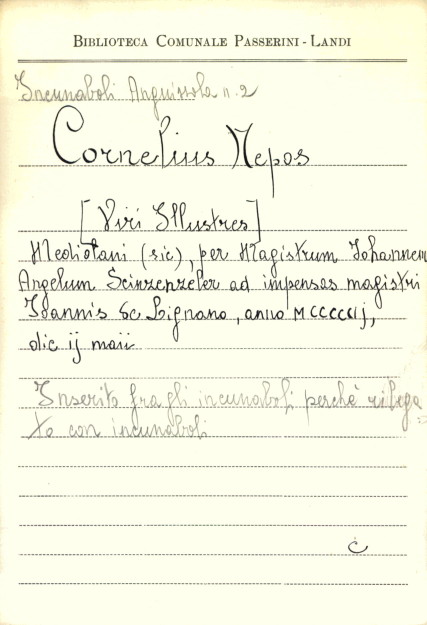 BIBLIOTECA COMUNALE PASSERINI-LANDI
Incunaboli Anguissola n. 2
Cornelius Nepos
[Viri Illustres]
Mediolani (sic), per Magistrum Johannem
Angelum Scinzenzeler ad impensas magistri
Ioannis de Lignano, anno MCCCCCIj,
die ij maii
Inserito fra gli incunaboli perchè rilega
to con incunaboli
c